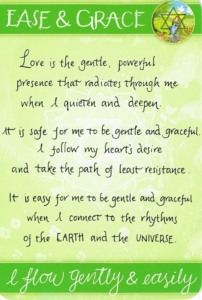 EASE & GRACE
Love is the gentle, powerful
presence that radiates through me
when I quieten and deepen.
It is safe for me to be gentle and graceful.
I follow my heart's desire
and take the path of least resistance.
It is easy for me to be gentle and graceful
when I connect to the rhythms
of the EARTH and the UNIVERSE.
I flow gently & easily